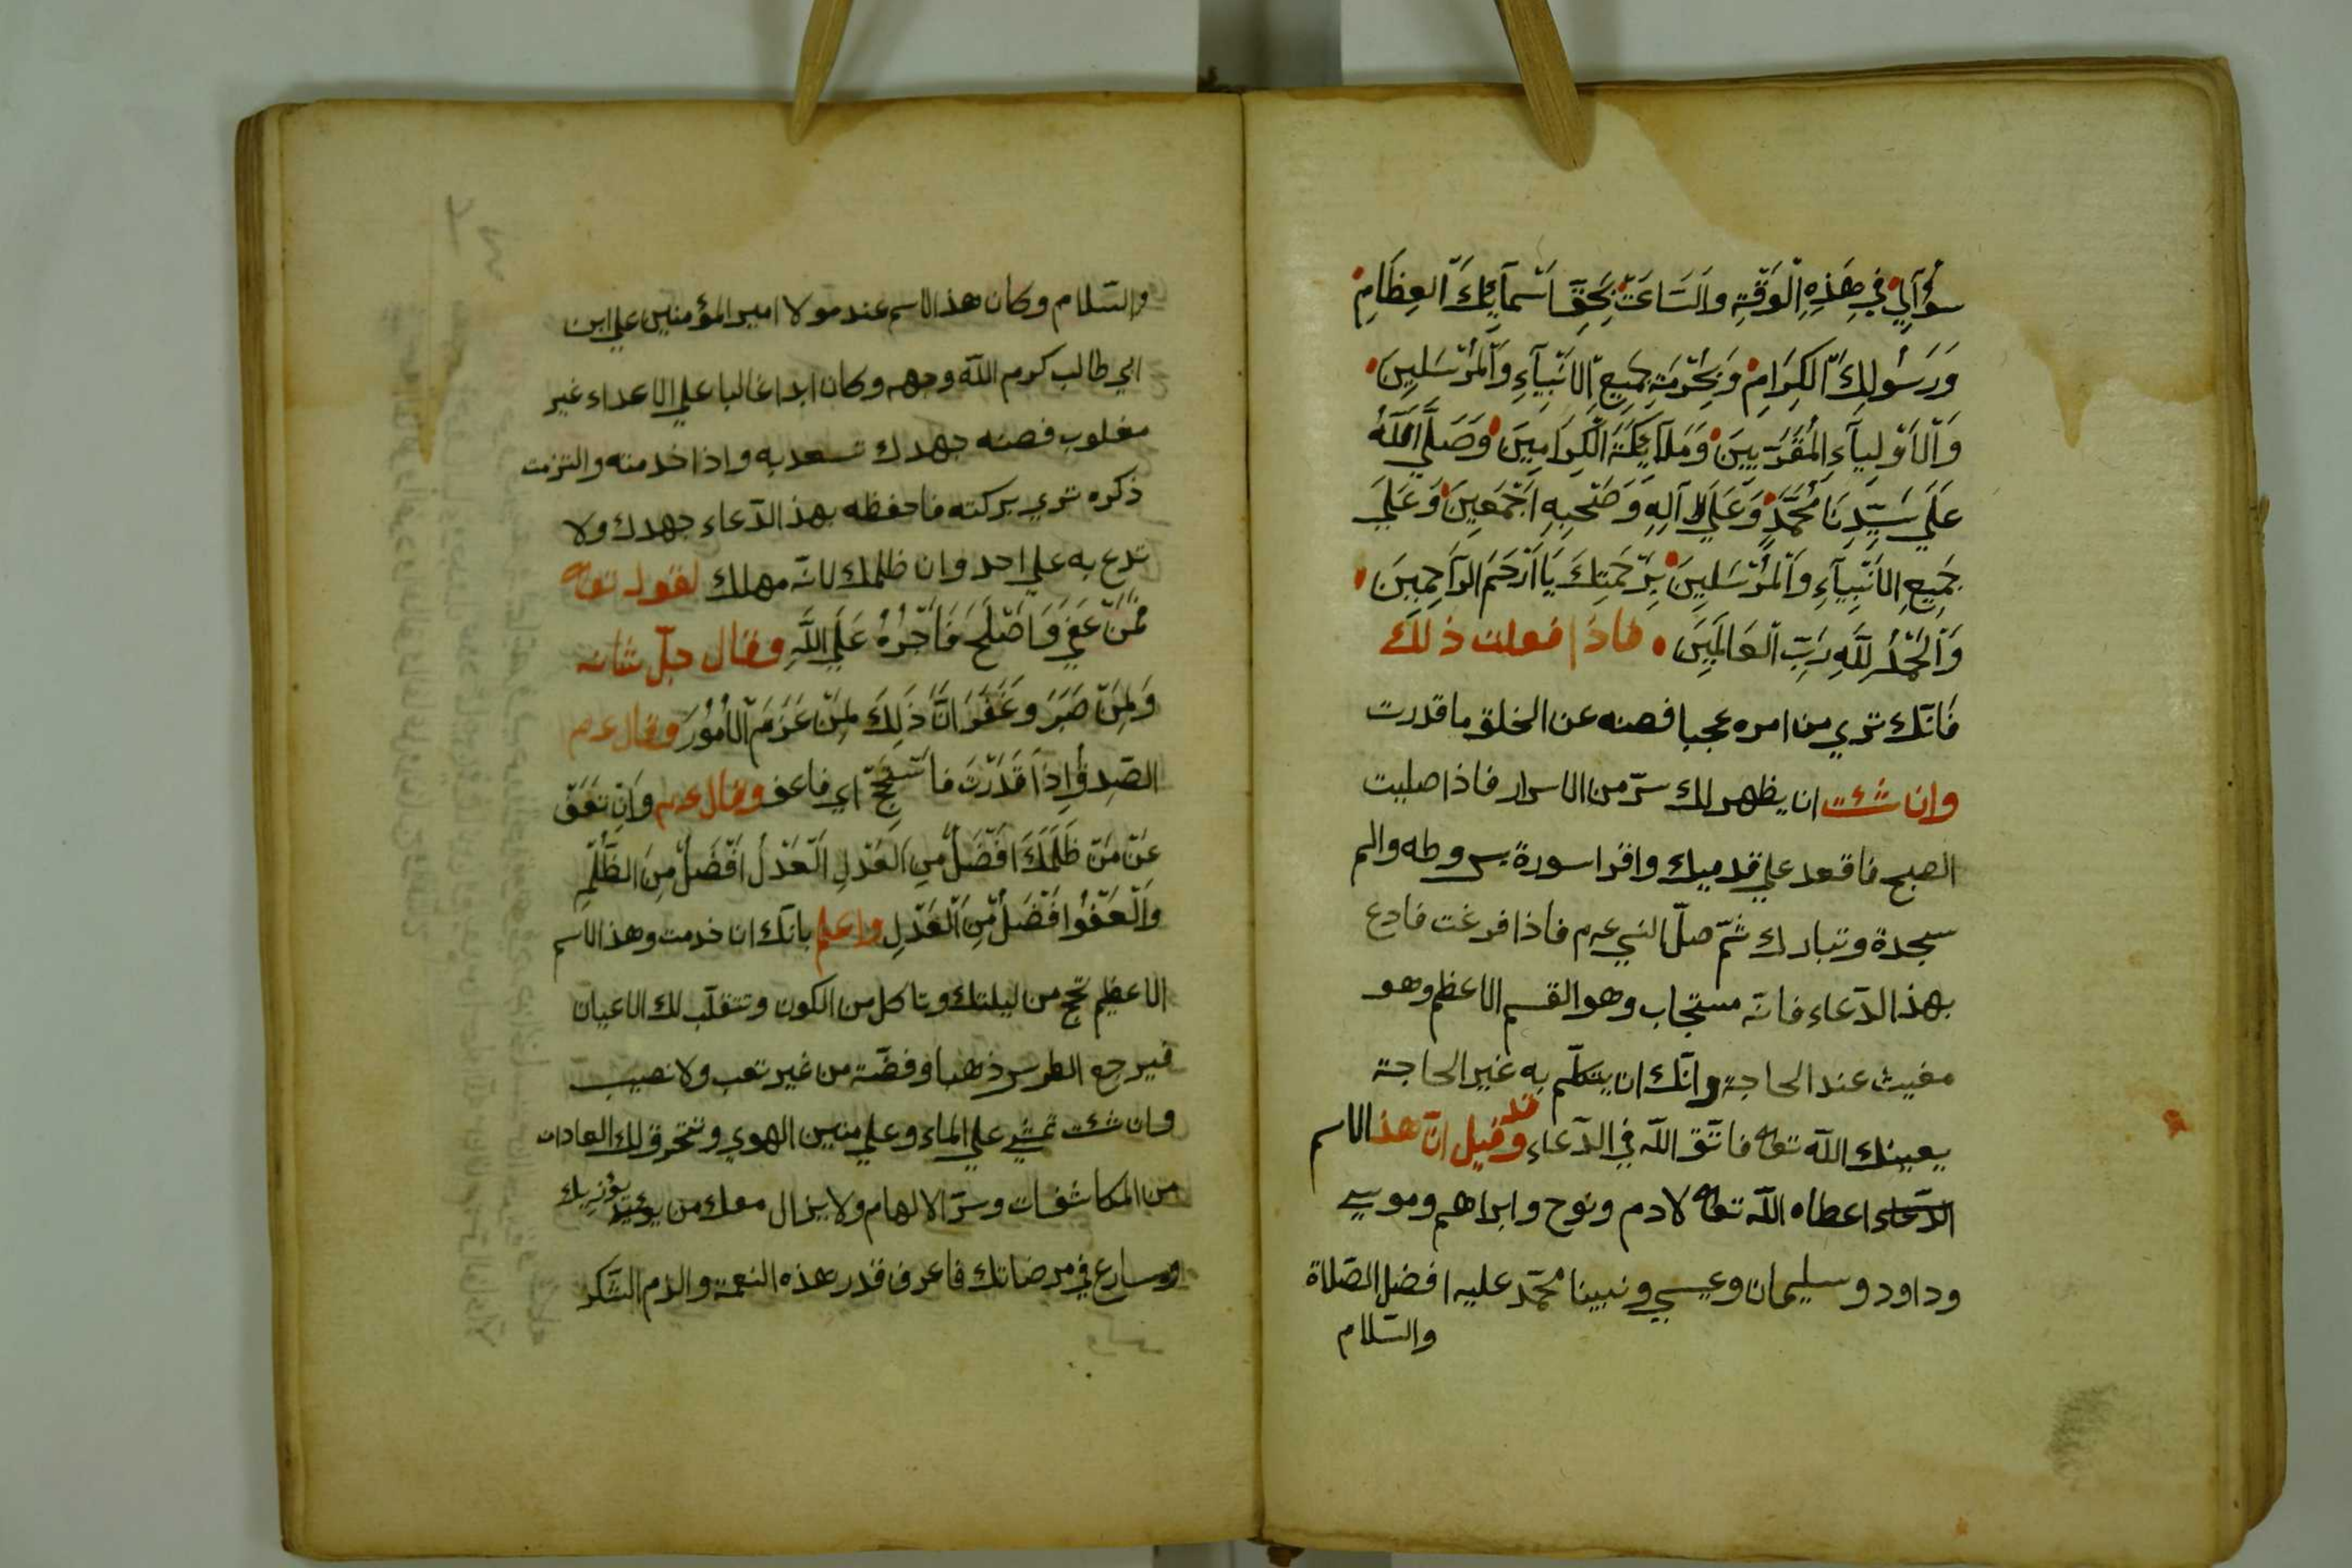 سُؤَالِي فِي هَذِهِ الْوَقْتِ وَالسَّاعَتْ بِحَقِّ اَسْمَآئِكَ الْعِظَامِ
وَرَسُولِكَ الْكِرَامِ وَبِحُرْمَةِ جَمِيعِ الْاَنْبِيَآءِ وَالْمُرْسَلِينَ
وَالْاَوْلِيَآءِ الْمُقَرَّبِينَ وَمَلَآئِكَةَ الْكِرَامِينَ وَصَلَّى اللّٰهُ
عَلَى سَيِّدِنَا مُحَمَّدٍ وَعَلَى آلِهِ وَصَحْبِهِ اَجْمَعِينَ وَعَلَى
جَمِيعِ الْاَنْبِيَآءِ وَالْمُرْسَلِينَ بِرَحْمَتِكَ يَا اَرْحَمَ الرَّاحِمِينَ
وَالْحَمْدُ لِلّٰهِ رَبِّ الْعَالَمِينَ فاذا فعلت ذلك
فَانّك تري من امره عجبا فصنه عن الخلق ما قدرت
وان شئت ان يظهر لك سرّ من الاسرار فاذا صليت
الصبح فاقعد علي قدميك واقرا سورة يس وطه والم
سجدة وتبارك ثمّ صلّ النبي عم فاذا فرغت فادع
بهذ الدّعاء فانّه مستجاب وهو القسم الاعظم وهو
مغيث عند الحاجة وانّك ان يتكلّم به غير الحاجة
يعينك اللّه تعا فاتّق اللّه في الدّعاء وقد قيل انّ هذ الاسم
الدّعاء اعطاه اللّه تعا لادم ونوح وابراهم وموسي
وداود وسليمان وعيسي ونبينا محمّد عليه افضل الصّلاة
والسّلام
والسّلام وكان هذ الاسم عند مولا امير المؤمنين علي ابن
ابي طالب كرم اللّه وجهه وكان ابدا غالبا علي الاعداء غير
مغلوب فصنه جهدك تسعد به واذا خدمته والتزمت
ذكره تري بركته فاحفظه بهذ الدّعاء جهدك ولا
تدع به علي احد وان ظلمك لانّه مهلك لقوله تعا
فَمَنْ عَفَي وَاَصْلَحَ فَاَجْرُهُ عَلَي اللّٰهِ وقال جلّ شانه
وَلِمَنْ صَبَرَ وَغَفَرَ انَّ ذَلِكَ لِمَنْ عَزَمَ الْاُمُورَ وقال عم
الصّدق اِذَا قَدَرْتَ فَاسْجَحْ اي فاعف وقال عم وَاِنْ تعَفْ
عَنْ مَنْ ظَلَمَكَ اَفْضَلُ مِنَ الْعَدْلِ الْعَدْلُ اَفْضَلُ مِنَ الظُّلْمِ
وَالْعَفْوُ اَفْضَلُ مِنَ الْعَدْلِ واعلم بانّك ان خدمت وهذ الاسم
الاعظيم تحج من ليلتك وتاكل من الكون وتتقلّب لك الاعيان
فيرجع الطرس ذهبا وفضّة من غير تعب ولا نصيب
وان شئت تمشي علي الماء وعلي متين الهوي وتخرق لك العادات
من المكاشفات وسرّ الالهام ولا يزال معك من يؤذيك
ويسارع في مرضاتك فاعرف قدر هذه النعمة والزم الشّكر